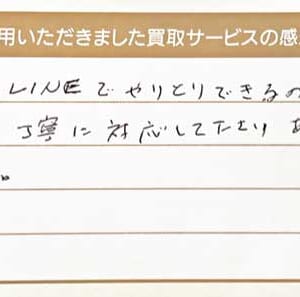 用いただきました買取サービスの感
LINEでやりとりできるの
丁寧に対応して下さり あ
。